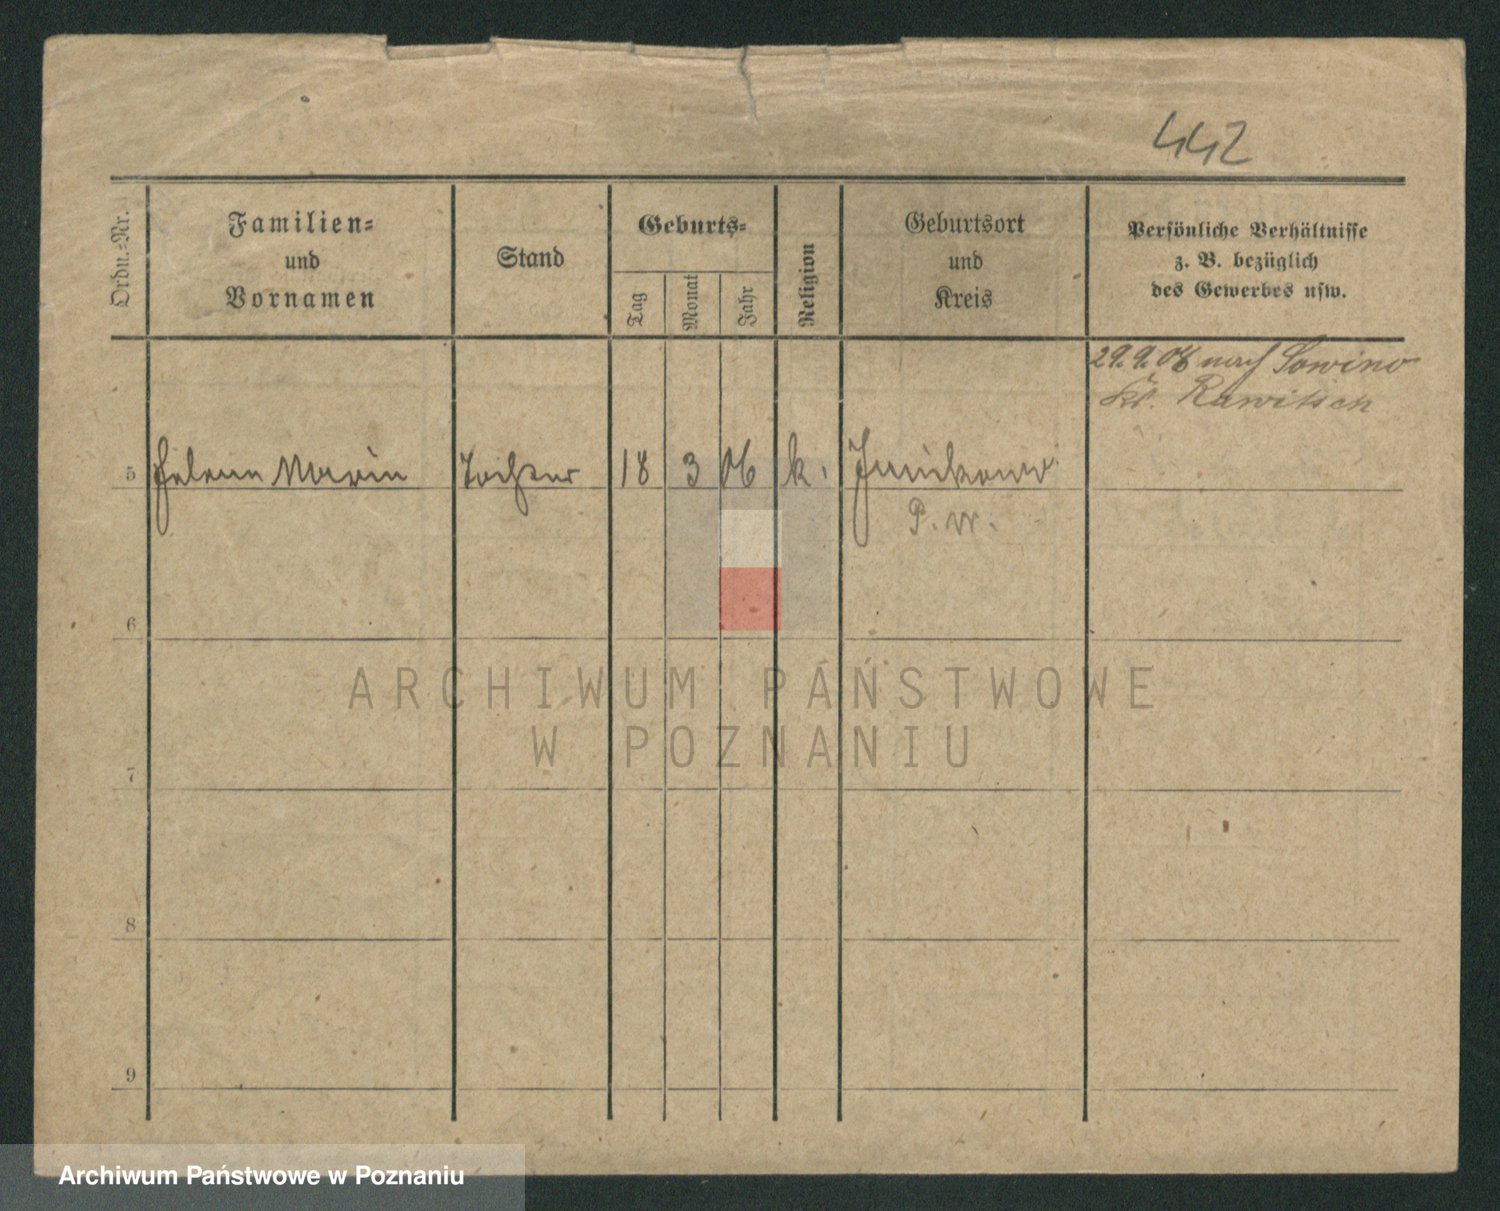 442
Ordn.=Nr.
Familien=
und
Vornamen
Stand
Geburts=
Tag
Monat
Jahr
Religion
Geburtsort
und
Kreis
Persönliche Verhältnisse
z. B. bezüglich
des Gewerbes usw.
29.9.08 nach Sowino
Kr. Rawitsch
5 Helena Maria Tochter 18 3 06 k. Junikowo
P. W.
6
7
8
9
ARCHIWUM PAŃSTWOWE
W POZNANIU
Archiwum Państwowe w Poznaniu